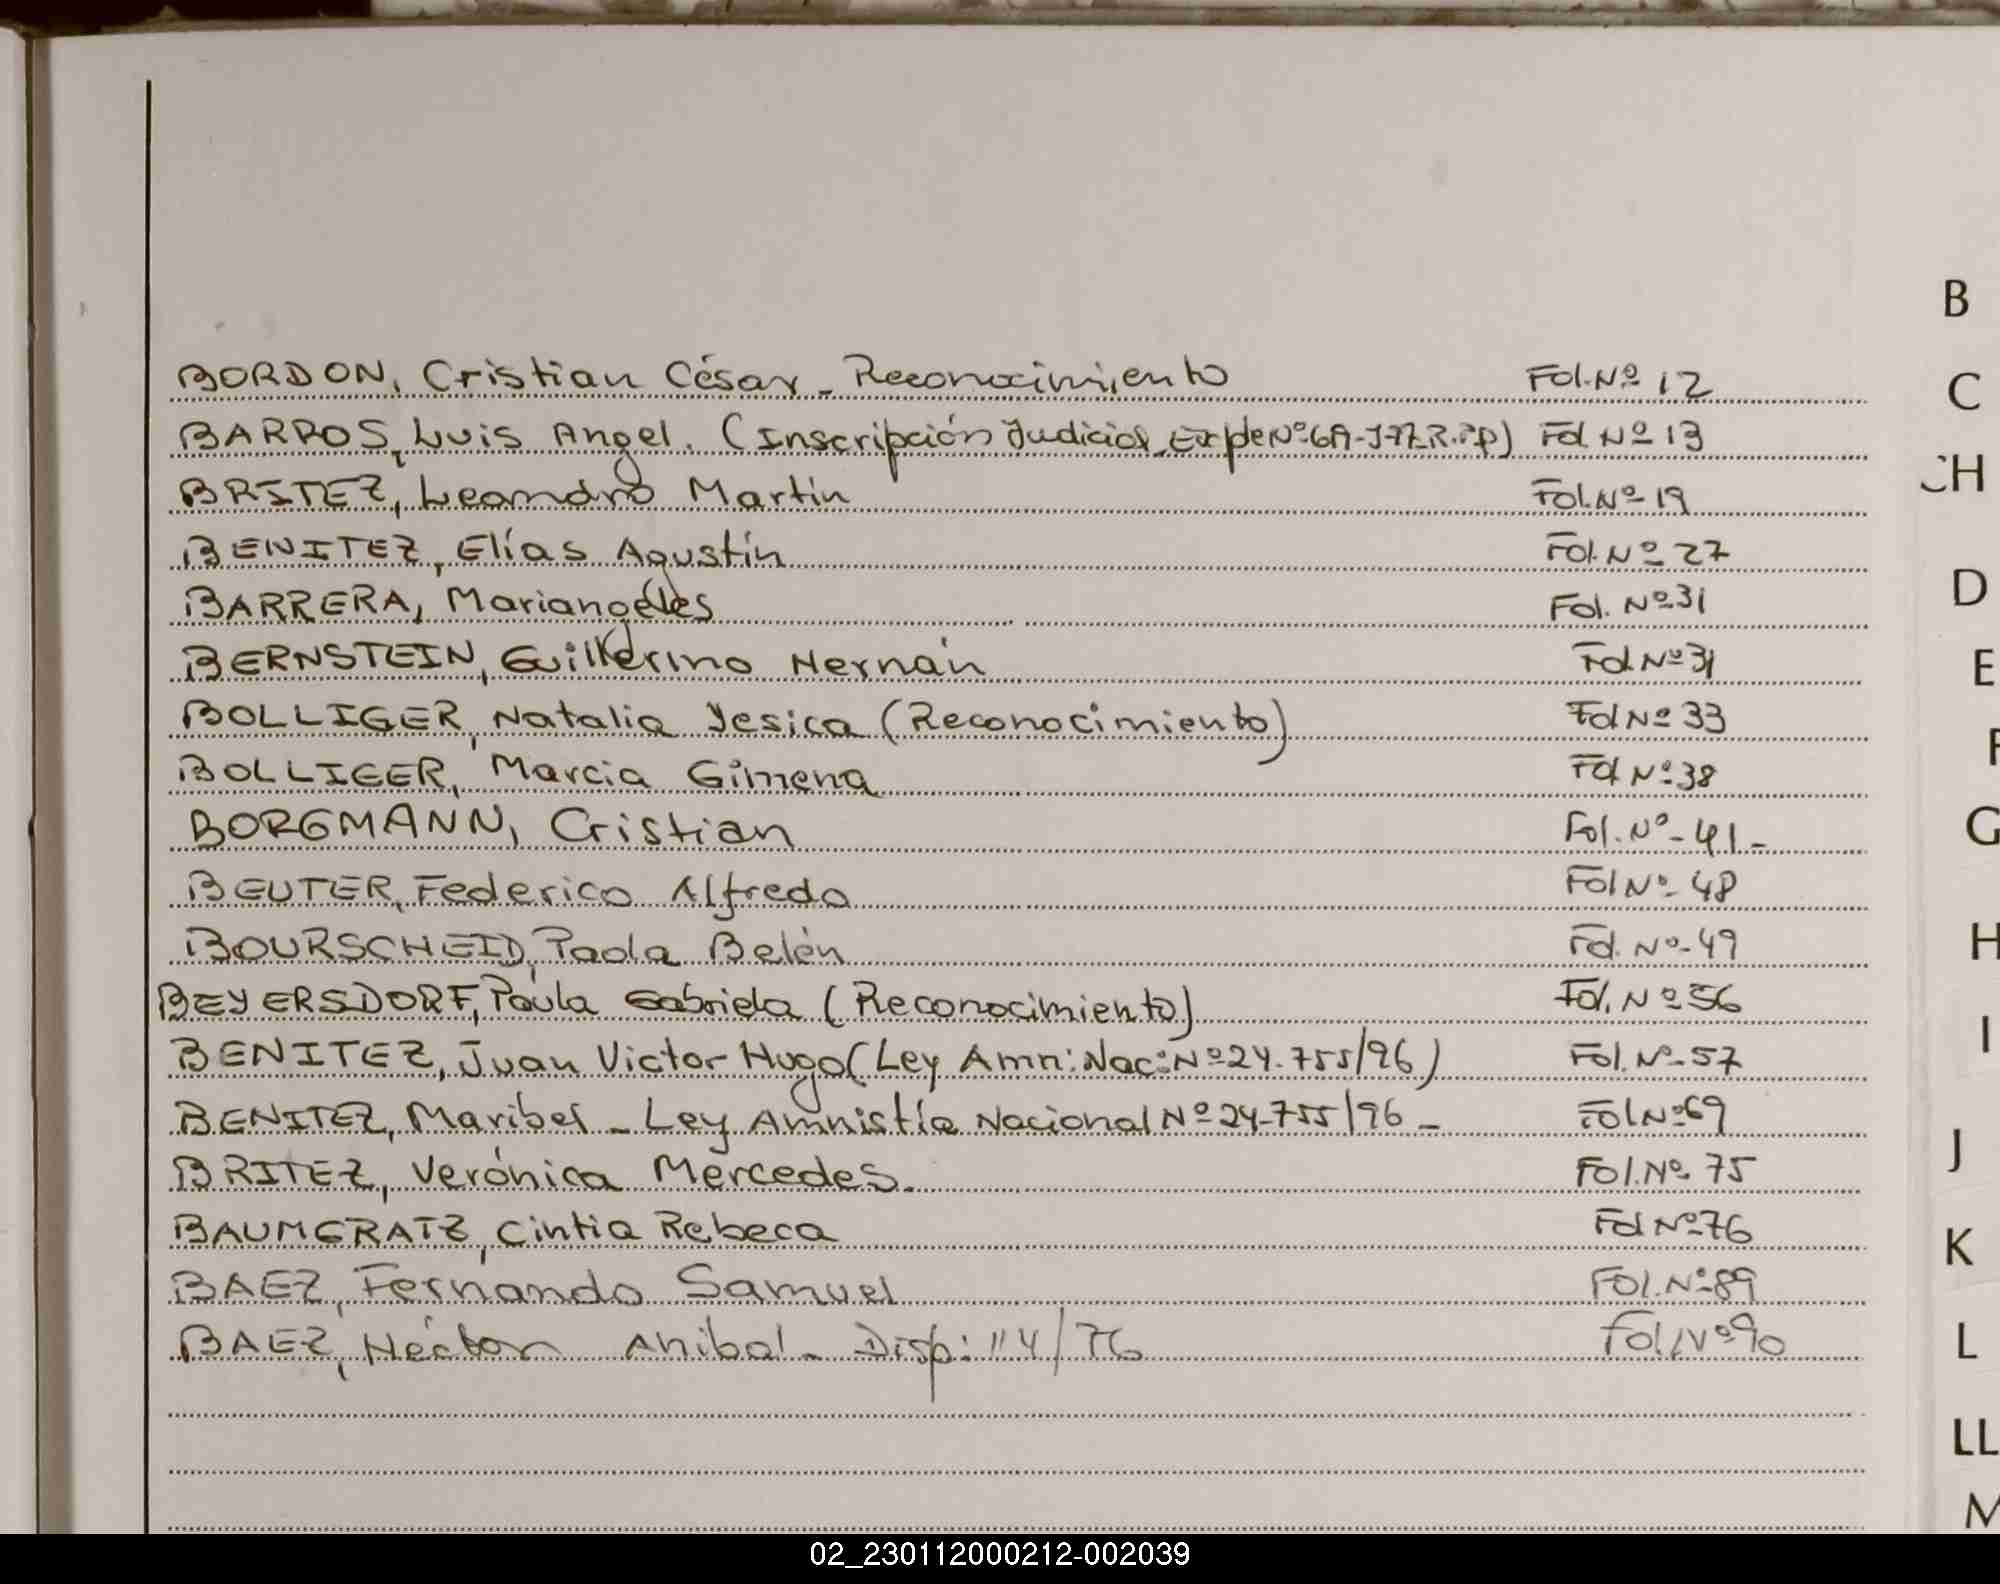 BORDON, Cristian César - Reconocimiento Fol. Nº 12
BARROS, Luis Angel. (Inscripción Judicial Expte Nº Fol Nº 13
BRITEZ, Leandro Martín Fol. Nº 19
BENITEZ, Elías Agustín Fol. Nº 27
BARRERA, Mariangeles Fol. Nº 31
BERNSTEIN, Guillermo Hernán Fol Nº 31
BOLLIGER, Natalia Yesica (Reconocimiento) Fol Nº 33
BOLLIGER, Marcia Gimena Fol Nº 38
BORGMANN, Cristian Fol. Nº - 41 -
BEUTER, Federico Alfredo Fol Nº - 48
BOURSCHEID, Paola Belén Fol. Nº - 49
BEYERSDORF, Paula Gabriela (Reconocimiento) Fol. Nº 56
BENITEZ, Juan Victor Hugo (Ley Amn: Nac: Nº 24.755/96) Fol. Nº - 57
BENITEZ, Maribel - Ley Amnistía Nacional Nº 24-755/96 - Fol Nº 69
BRITEZ, Verónica Mercedes. Fol. Nº 75
BAUMGRATZ, Cintia Rebeca Fol Nº 76
BAEZ, Fernando Samuel Fol. Nº 89
BAEZ, Héctor Anibal - Disp: 114/76 Fol. Nº 90
B
C
CH
D
E
F
G
H
I
J
K
L
LL
M
02_230112000212-002039